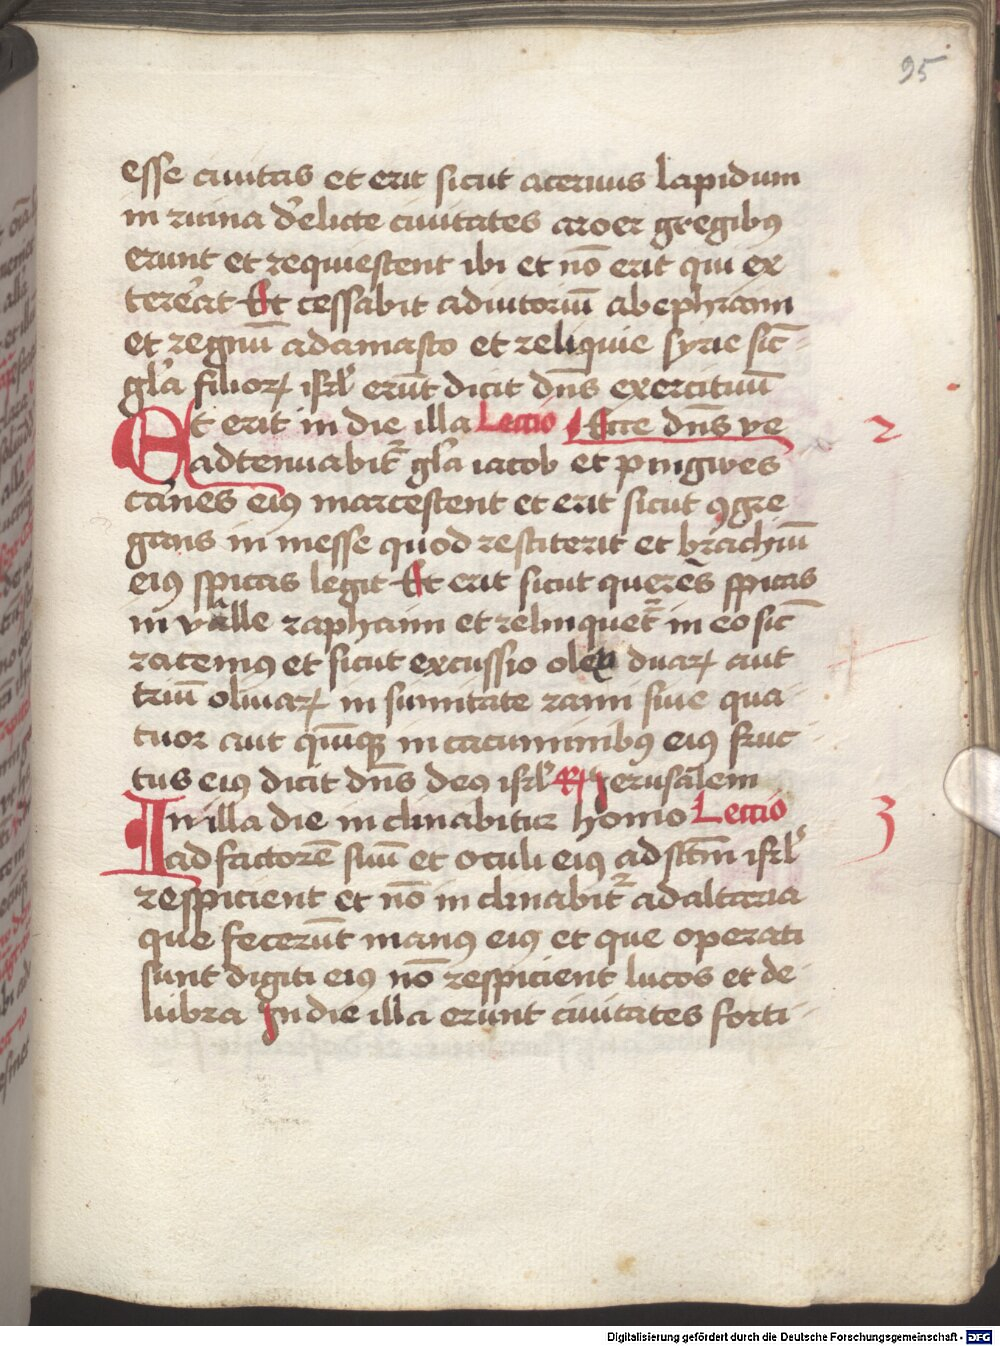 95
esse ciuitas et erit sicut aceruus lapidum
in ruina d'elicte ciuitates aroer gregibꝰ
erunt et requiescent ibi et nō erit qui ex
tere'at Et cessabit adiutoriū ab ephraim
et regnū adamasco et reliquie syrie sic̄
gl'a filioꝝ isrl' erūt dicit dn̄s exercituū
Et erit in die illa Lectio Ecce dn̄s ve 2
adtenuabit᷑ gl'a iacob et pingwes
carnes eiꝰ marcescent et erit sicut ꝯgre
gans in messe quod restiterit et brachiū
eiꝰ spicas legit Et erit sicut querēs spicas
in valle raphaim et relinquet᷑ in eo sic̄
racemꝰ et sicut excussio olee duaꝝ aut
triū oliuaꝝ in sumitate rami siue qua
tuor aut quīqꝫ in cacuminibꝰ eiꝰ fruc
tus eiꝰ dicit dn̄s deꝰ isrl' ꝶ Jerusalem
In illa die inclinabitur homo Lectio 3
ad factorē suū et oculi eiꝰ ad sc̄m isrl'
respicient et nō inclinabit᷑ ad altaria
que fecerūt manꝰ eiꝰ et que operati
sunt digiti eiꝰ nō respicient lucos et de
lubra In die illa erunt ciuitates forti
Digitalisierung gefördert durch die Deutsche Forschungsgemeinschaft - DFG